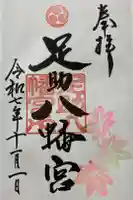 奉拝
足助八幡宮
令和七年十一月一日